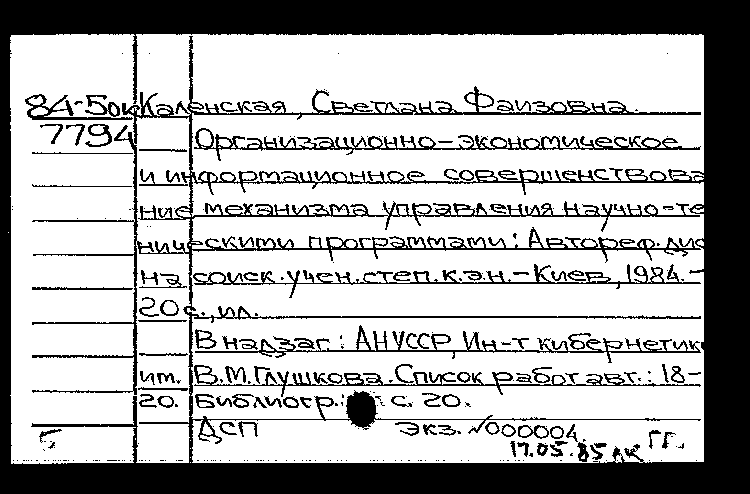 84-5ок Каленская, Светлана Фаизовна.
7794 Организационно-экономическое
и информационное совершенствова
ние механизма управления научно-те
ническими программами: Автореф. дис
на соиск. учен. степ. к.э.н. - Киев, 1984. -
20 с., ил.
В надзаг.: АН УССР, Ин-т кибернетики
им. В.М. Глушкова. Список работ авт.: 18-
20. Библиогр.: с. 20.
ДСП экз. №000004.
17.05.85